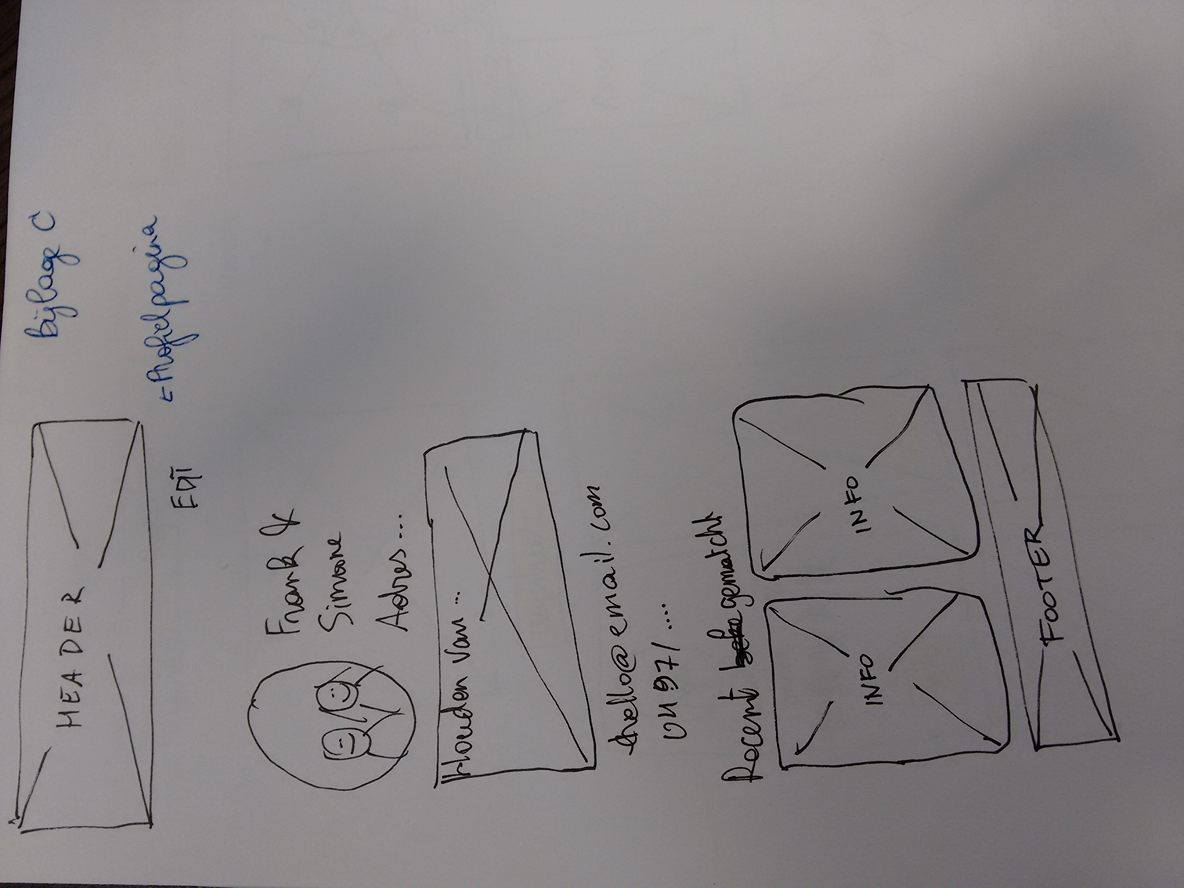 Bijlage C
HEADER
↳ Profielpagina
EDIT
Frank &
Simone
Adres...
Houden van...
hello@email.com
0497/....
Recent gematcht
INFO
INFO
FOOTER